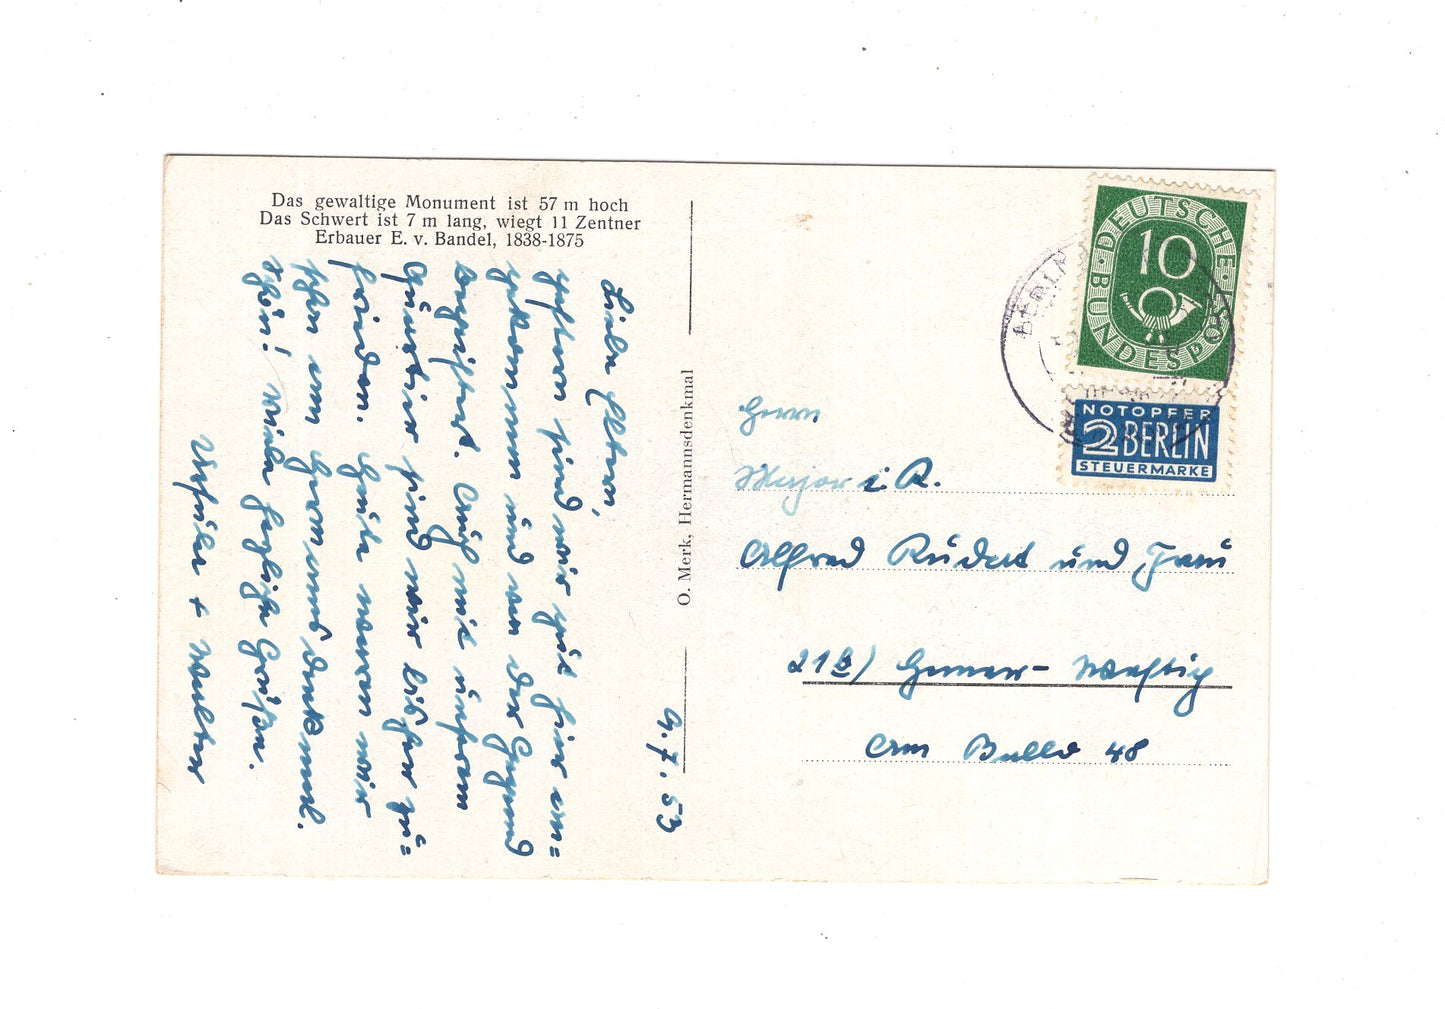 Das gewaltige Monument ist 57 m hoch
Das Schwert ist 7 m lang, wiegt 11 Zentner
Erbauer E. v. Bandel, 1838-1875
4. 7. 53
Liebe Eltern,
gestern sind wir gut hier an=
gekommen und von der Gegend
begeistert. Auch mit unserem
Quartier sind wir bisher zu=
frieden. Heute waren wir
schon am Hermannsdenkmal.
Schön! Viele herzliche Grüße.
Ursula + Walter
O. Merk, Hermannsdenkmal
DEUTSCHE BUNDESPOST
10
NOTOPFER
2 BERLIN
STEUERMARKE
BERLIN
Herrn
Major i R.
Alfred Rudert und Frau
21b) Hemer-Westig
Am 48